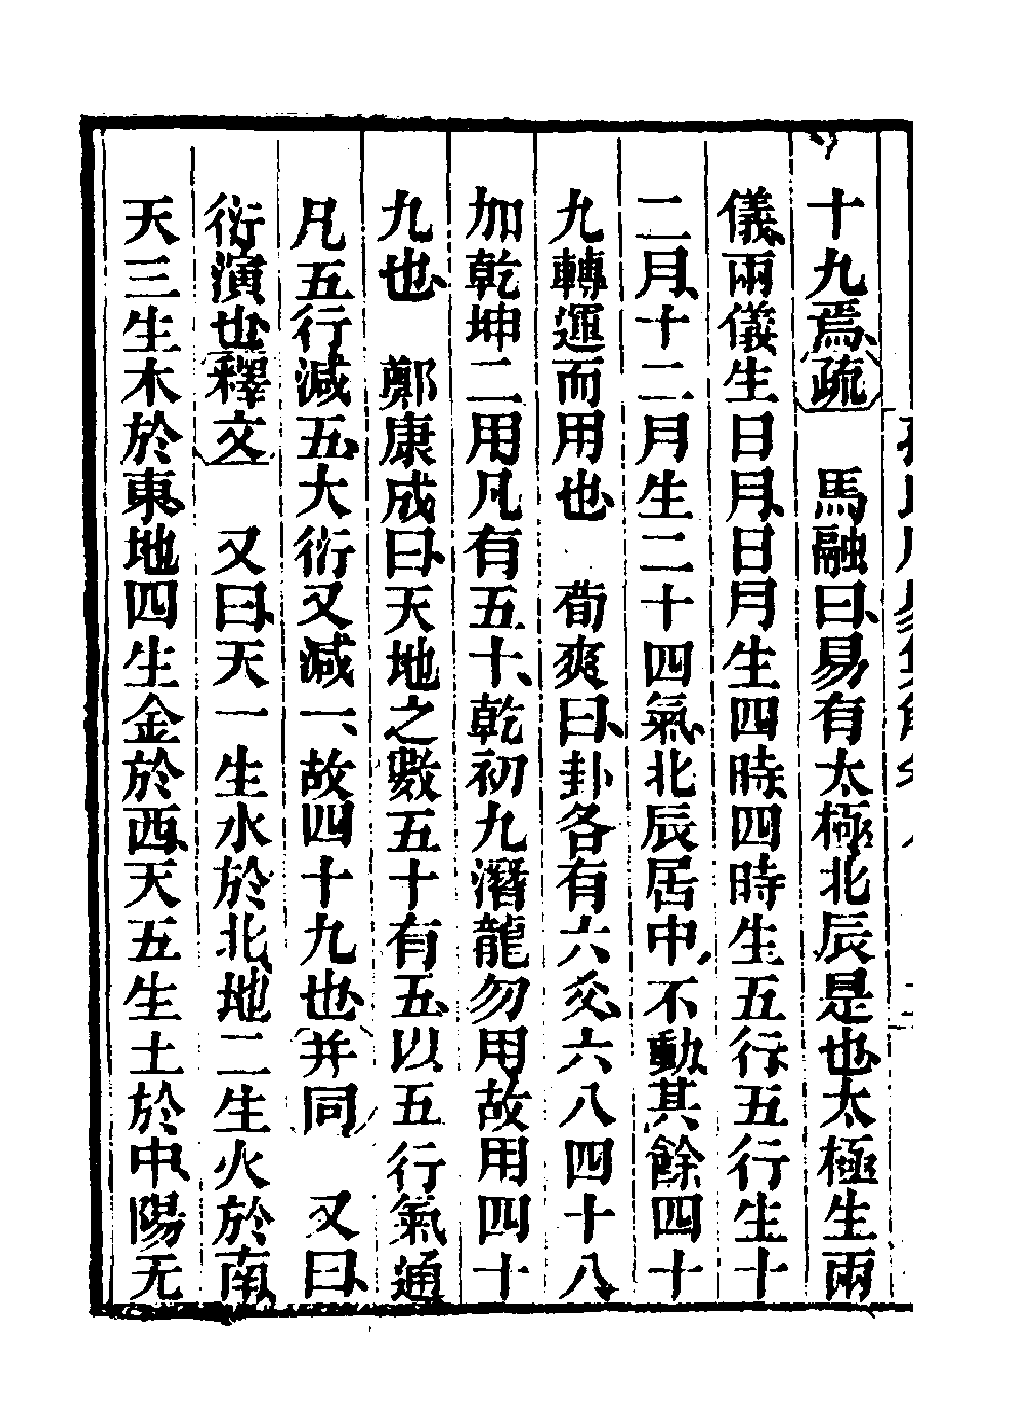 十九焉疏　馬融曰易有太極北辰是也太極生兩
儀兩儀生日月日月生四時四時生五行五行生十
二月十二月生二十四氣北辰居中不動其餘四十
九轉運而用也　荀爽曰卦各有六爻六八四十八
加乾坤二用凡有五十乾初九潛龍勿用故用四十
九也　鄭康成曰天地之數五十有五以五行氣通
凡五行減五大衍又減一故四十九也并同　又曰
衍演也釋文　又曰天一生水於北地二生火於南
天三生木於東地四生金於西天五生土於中陽无